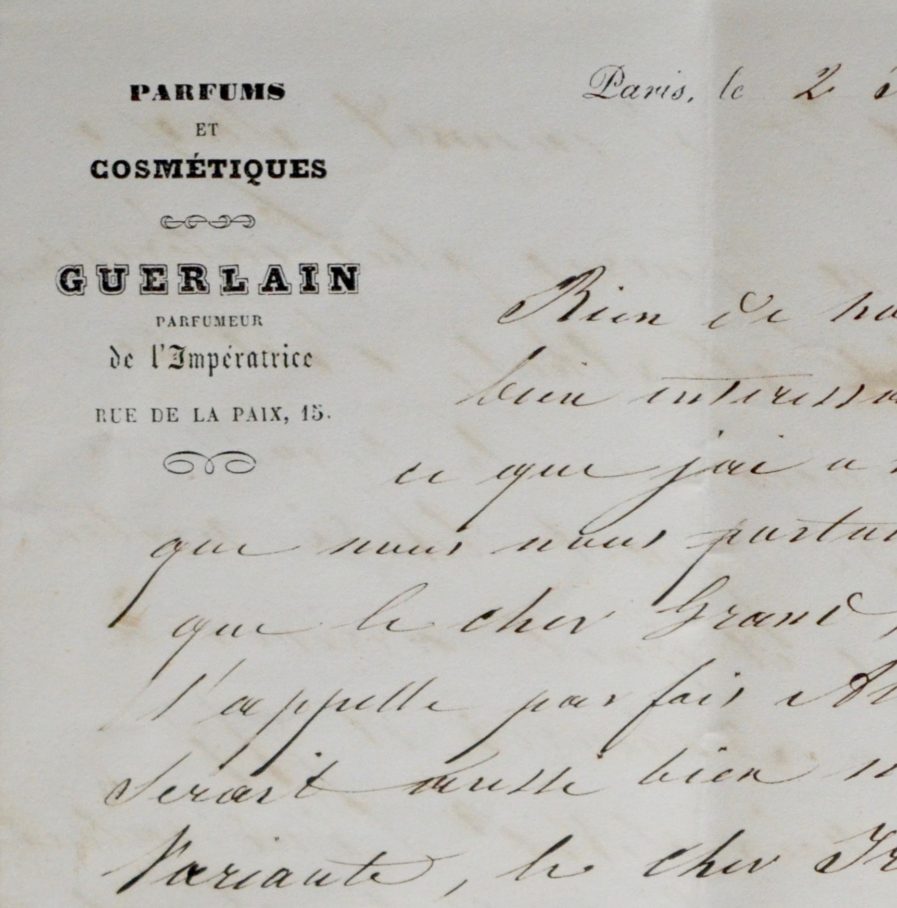 PARFUMS
ET
COSMÉTIQUES
GUERLAIN
PARFUMEUR
de l'Impératrice
RUE DE LA PAIX, 15.
Paris, le 2
Rien de
bien
ce que j'ai a
que nous nous
que le cher Grand,
l'appelle parfois
Serait aussi bien
Variante, le cher